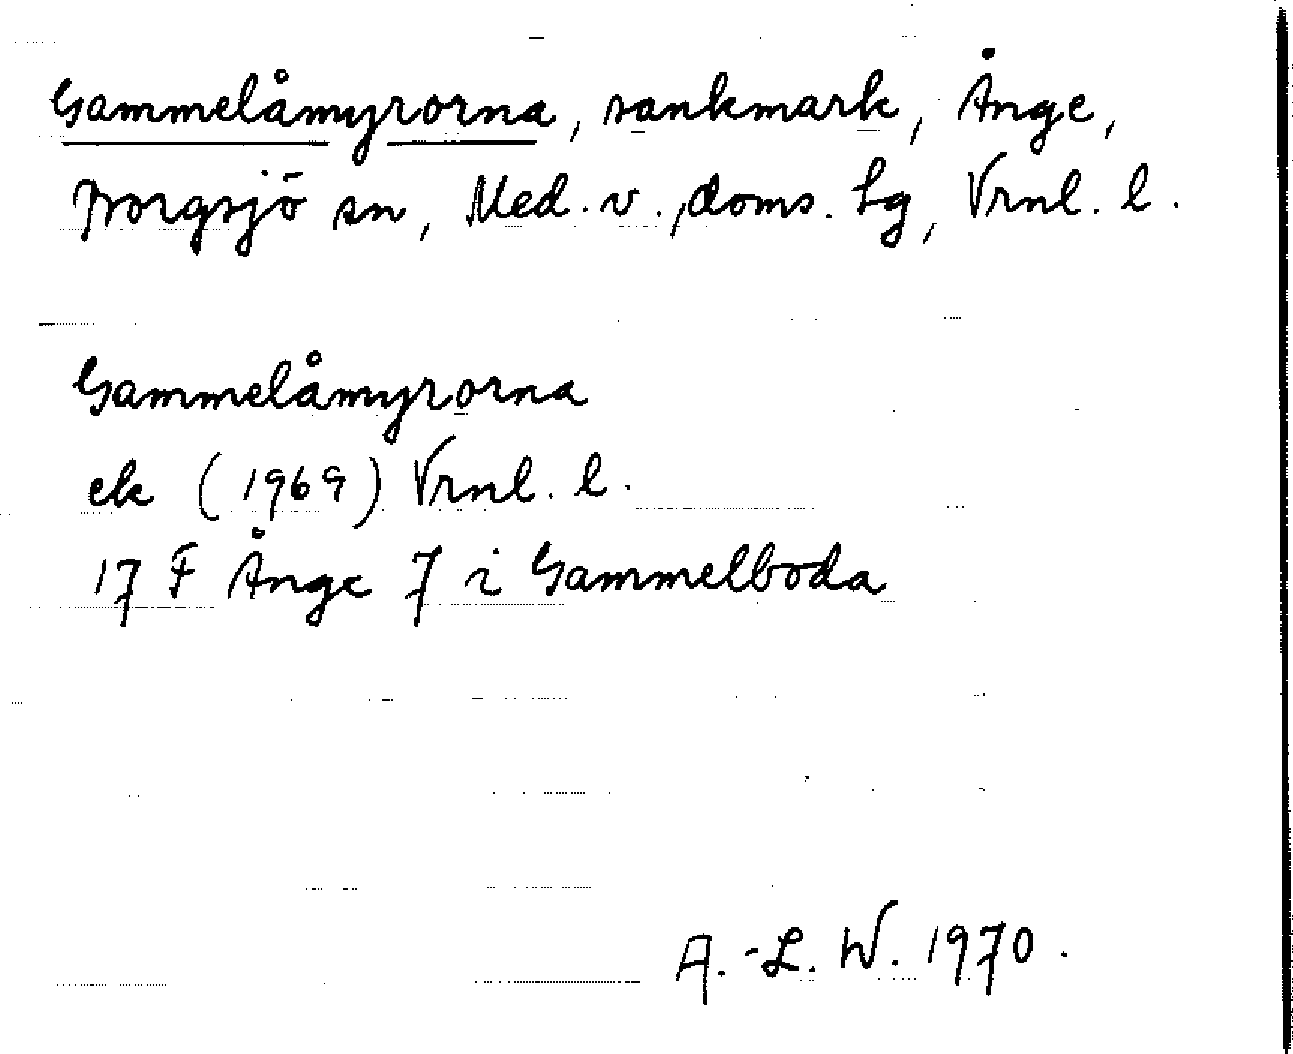 Gammelåmyrorna, sankmark, Ånge,
Borgsjö sn, Med. v., doms. hg, Vrnl. l.
Gammelåmyrorna
ek (1969) Vrnl. l.
17 F Ånge 7 i Gammelboda
A.-L. W. 1970.